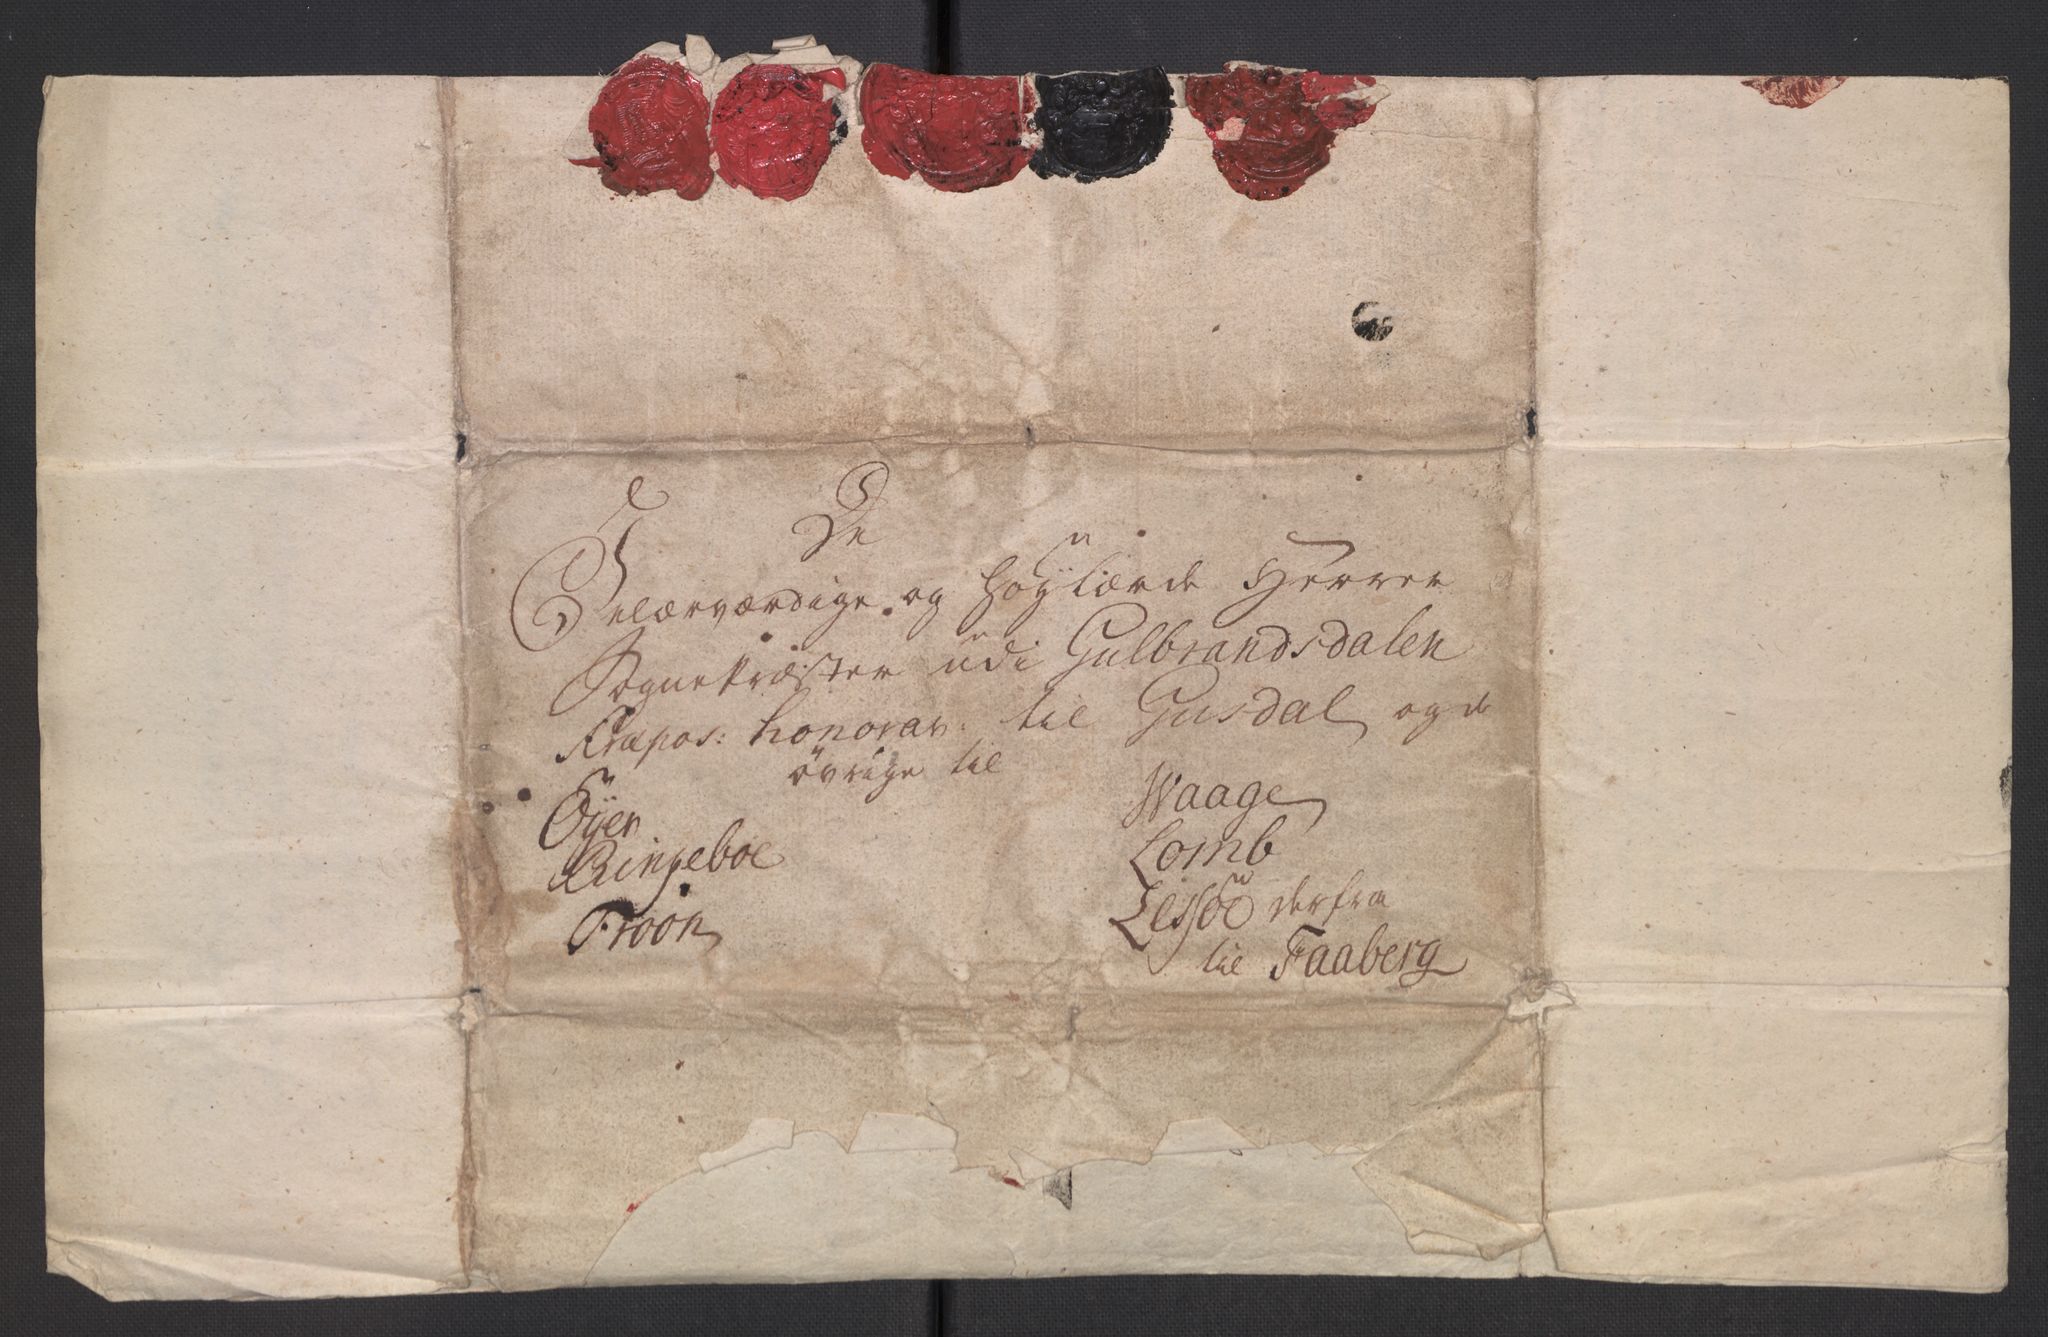 De
Velærværdige og Høÿlærde Herrer
Sognepræster udi Gulbrandsdalen
Præpos: honorar: til Gusdal og de
övrige til
Öÿer
Ringeboe
Froon
Waage
Lomb
Lessöe derfra
til Faaberg